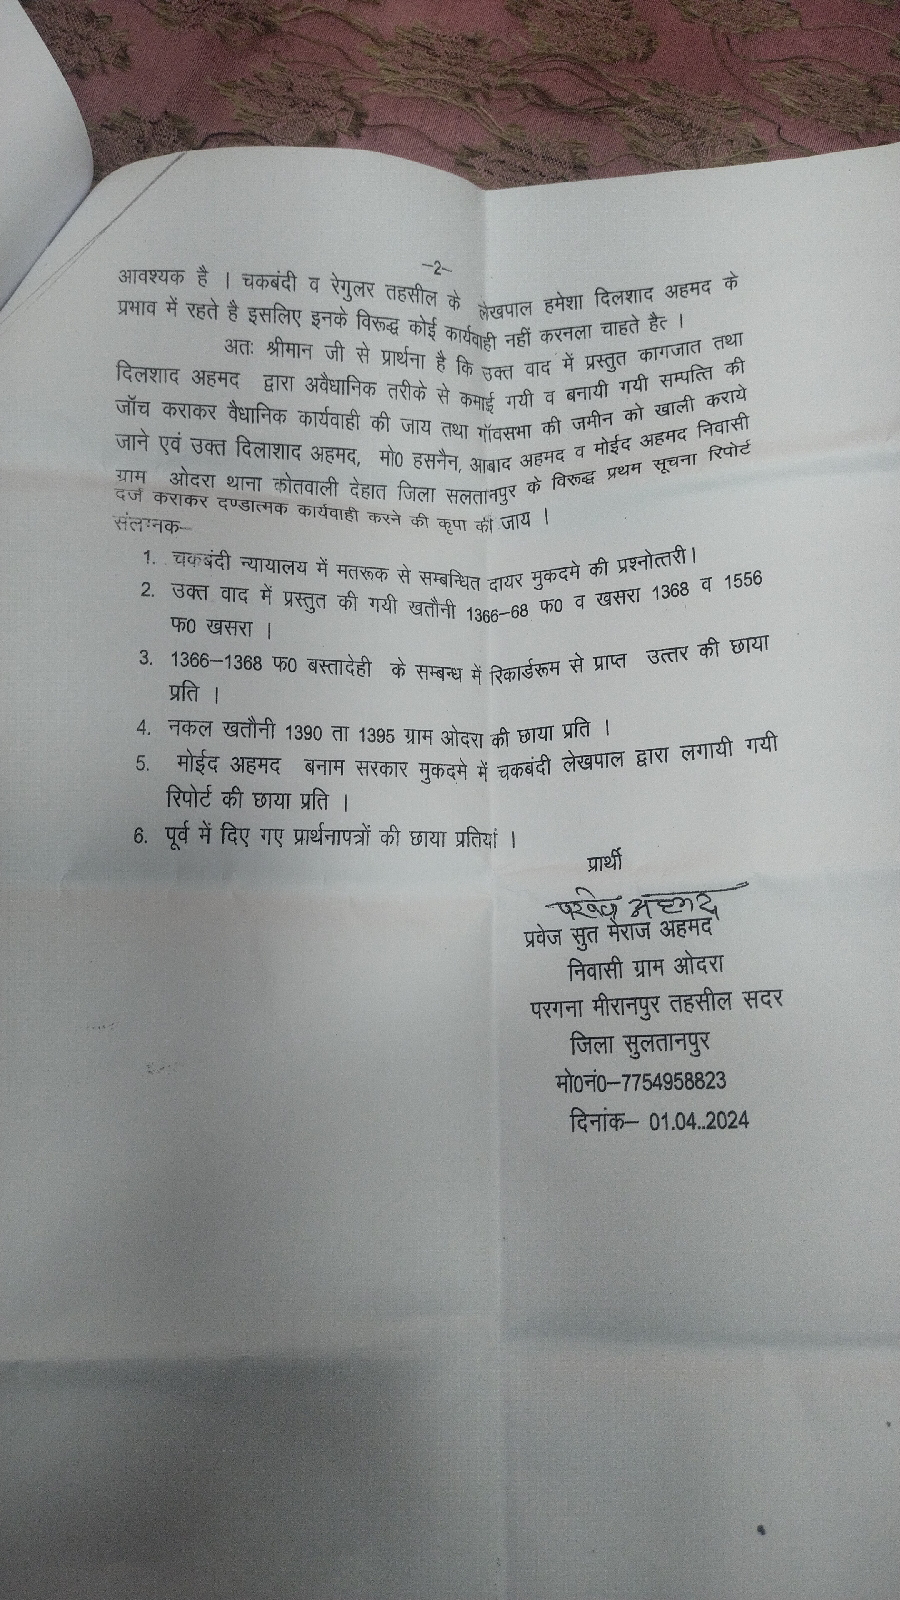 –2–
आवश्यक है । चकबंदी व रेगुलर तहसील के लेखपाल हमेशा दिलशाद अहमद के
प्रभाव में रहते है इसलिए इनके विरूद्ध कोई कार्यवाही नहीं करनला चाहते हैत ।
अतः श्रीमान जी से प्रार्थना है कि उक्त वाद में प्रस्तुत कागजात तथा
दिलशाद अहमद द्वारा अवैधानिक तरीके से कमाई गयी व बनायी गयी सम्पत्ति की
जॉच कराकर वैधानिक कार्यवाही की जाय तथा गॉवसभा की जमीन को खाली कराये
जाने एवं उक्त दिलाशाद अहमद, मो0 हसनैन, आबाद अहमद व मोईद अहमद निवासी
ग्राम ओदरा थाना कोतवाली देहात जिला सलतानपुर के विरूद्ध प्रथम सूचना रिपोर्ट
दर्ज कराकर दण्डात्मक कार्यवाही करने की कृपा की जाय ।
संलग्नक–
1. चकबंदी न्यायालय में मतरूक से सम्बन्धित दायर मुकदमे की प्रश्नोत्तरी।
2. उक्त वाद में प्रस्तुत की गयी खतौनी 1366–68 फ0 व खसरा 1368 व 1556
फ0 खसरा ।
3. 1366–1368 फ0 बस्तादेही के सम्बन्ध में रिकार्डरूम से प्राप्त उत्तर की छाया
प्रति ।
4. नकल खतौनी 1390 ता 1395 ग्राम ओदरा की छाया प्रति ।
5. मोईद अहमद बनाम सरकार मुकदमे में चकबंदी लेखपाल द्वारा लगायी गयी
रिपोर्ट की छाया प्रति ।
6. पूर्व में दिए गए प्रार्थनापत्रों की छाया प्रतियां ।
प्रार्थी
परवेज अहमद
प्रवेज सुत मेराज अहमद
निवासी ग्राम ओदरा
परगना मीरानपुर तहसील सदर
जिला सुलतानपुर
मो0नं0–7754958823
दिनांक– 01.04..2024